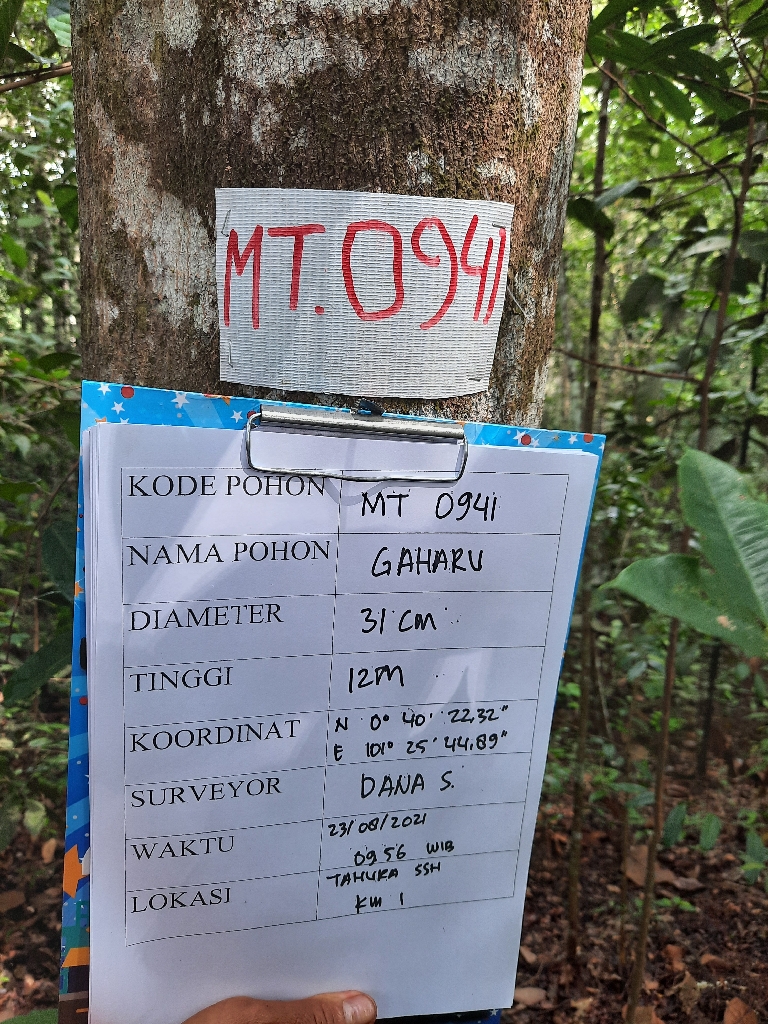 MT. 0941
KODE POHON MT 0941
NAMA POHON GAHARU
DIAMETER 31 cm
TINGGI 12M
KOORDINAT N 0° 40' 22,32"
E 101° 25' 44,89"
SURVEYOR DANA S.
WAKTU 23/08/2021
0956 WIB
LOKASI TAHURA SSH
KM 1